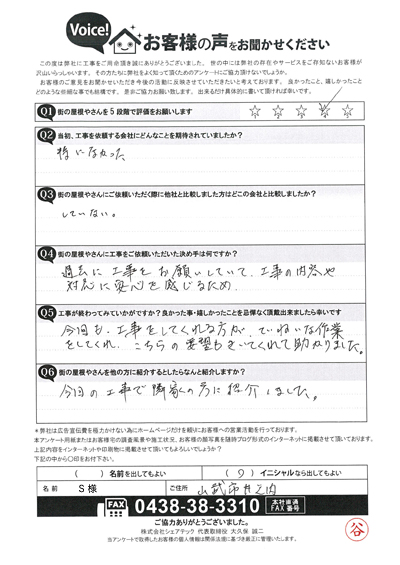 Voice!
お客様の声をお聞かせください
この度は弊社に工事をご用命頂き誠にありがとうございました。世の中には弊社の存在やサービスをご存知ないお客様が
沢山いらっしゃいます。その方たちに弊社をよく知って頂くためのアンケートにご協力頂けないでしょうか。
お客様のご意見をお聞かせいただき今後の活動に反映させていただきたいと考えております。良かったこと、嬉しかったこと
どのような些細な事でも結構です。是非ご協力お願い致します。出来るだけ具体的に書いて頂ければ幸いです。
Q1 街の屋根やさんを5段階で評価をお願いします ☆ ☆ ☆ ☆ ☆
Q2 当初、工事を依頼する会社にどんなことを期待されていましたか?
特になかった
Q3 街の屋根やさんにご依頼いただく際に他社と比較しました方はどこの会社と比較しましたか?
していない。
Q4 街の屋根やさんに工事をご依頼いただいた決め手は何ですか?
過去に工事をお願いしていて、工事の内容や
対応に安心を感じるため.
Q5 工事が終わってみていかがですか?良かった事・嬉しかったことを忌憚なく頂戴出来ましたら幸いです
今回も、工事をしてくれる方が、ていねいな作業
をしてくれ、こちらの要望もきいてくれて助かりました。
Q6 街の屋根やさんを他の方に紹介するとしたらなんと紹介しますか?
今回の工事で隣家の方に紹介しました。
*弊社は広告宣伝費を極力かけない為にホームページだけを頼りにお客様への営業活動を行っております。
本アンケート用紙またはお客様宅の調査風景や施工状況、お客様の顔写真を随時ブログ形式のインターネットに掲載させて頂いております。
上記内容をインターネットや印刷物に掲載させて頂いてもよろしいでしょうか?
下記の中から〇印をお付下さい。
( ) 名前を出してもよい (〇) イニシャルなら出してもよい
名前 S 様 ご住所 山武市井之内
FAX 0438-38-3310 本社直通 FAX番号
ご協力ありがとうございました。
株式会社シェアテック 代表取締役 大久保 誠二
当アンケートで取得したお客様の個人情報は関係法規に基づき厳正に管理いたします。
谷